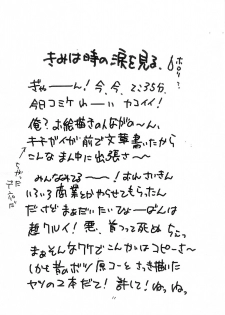 きみは時の涙を見る。
ぎゃーーん！今、今、2:35分、
今日コミケ カコイイ！
俺？お絵描きさんなが の〜ん、
キチガイが前で文章書いたから
こんな まん中に出張さ〜
みんなみてる〜！おれさいきん
いろいろ商業とかやらせてもらったん
だけど まぁだいたい ばんは
超クルイ！悪、首つって死ぬ
まぁそんなワケでこんかいはコピーさ〜
しかも昔のボツ原コーと さっき描いた
ヤツの2本だて！許して！ねっねっ